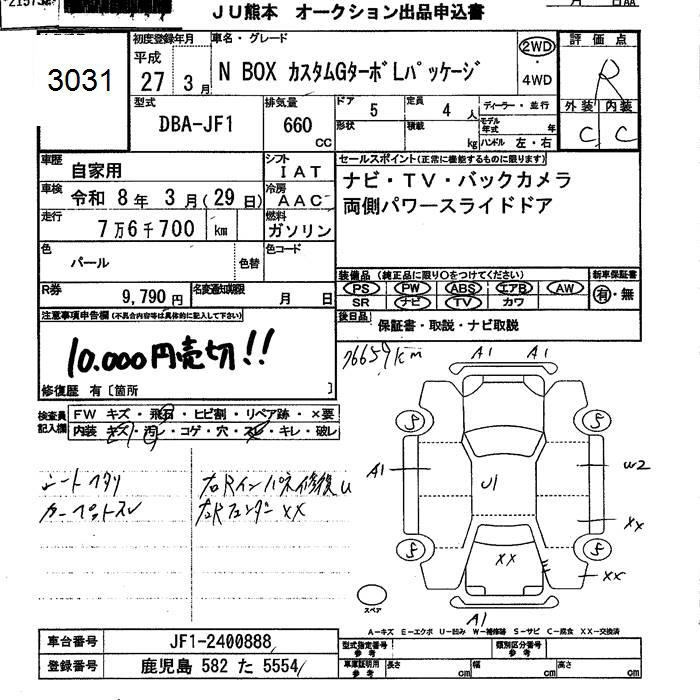 JU熊本 オークション出品申込書
月 日AA
3031
初度登録年月 車名・グレード
平成
27 3月
N BOX カスタムGターボLパッケージ
2WD
・
4WD
評価点
R
外装 内装
C C
型式 DBA-JF1
排気量 660 cc
ドア 5 定員 4 人
形状 積載 kg
ディーラー・並行
モデル年式 年
ハンドル 左・右
車歴 自家用
シフト IAT
車検 令和 8年 3月(29日)
冷房 AAC
走行 7万6千700 km
燃料 ガソリン
色 パール 色替
色コード
R券 9,790円
名変通知期限 月 日
セールスポイント(正常に機能するものに限ります)
ナビ・TV・バックカメラ
両側パワースライドドア
装備品(純正品に限り○をつけてください)
PS PW ABS エアB AW
SR ナビ TV カワ
新車保証書
有・無
後日品 保証書・取説・ナビ取説
注意事項申告欄(不具合内容等は具体的に記入して下さい)
10.000円売切!!
修復歴 有〔箇所 〕
76659km
検査員記入欄
FW キズ・飛石・ヒビ割・リペア跡・×要
内装 キズ・汚レ・コゲ・穴・スレ・キレ・破レ
シートヘタリ
カーペットスレ
右Rインパネ修復u
右Rフェンダー XX
A1 A1
S S
A1 U1 W2
XX
S S
XX XX
A1
スペア
A-キズ E-エクボ U-凹み W-補修跡 S-サビ C-腐食 XX-交換済
車台番号 JF1-2400888
登録番号 鹿児島 582 た 5554
型式指定番号 参考
類別区分番号 参考
車庫証明用 参考
長さ cm 幅 cm 高さ cm